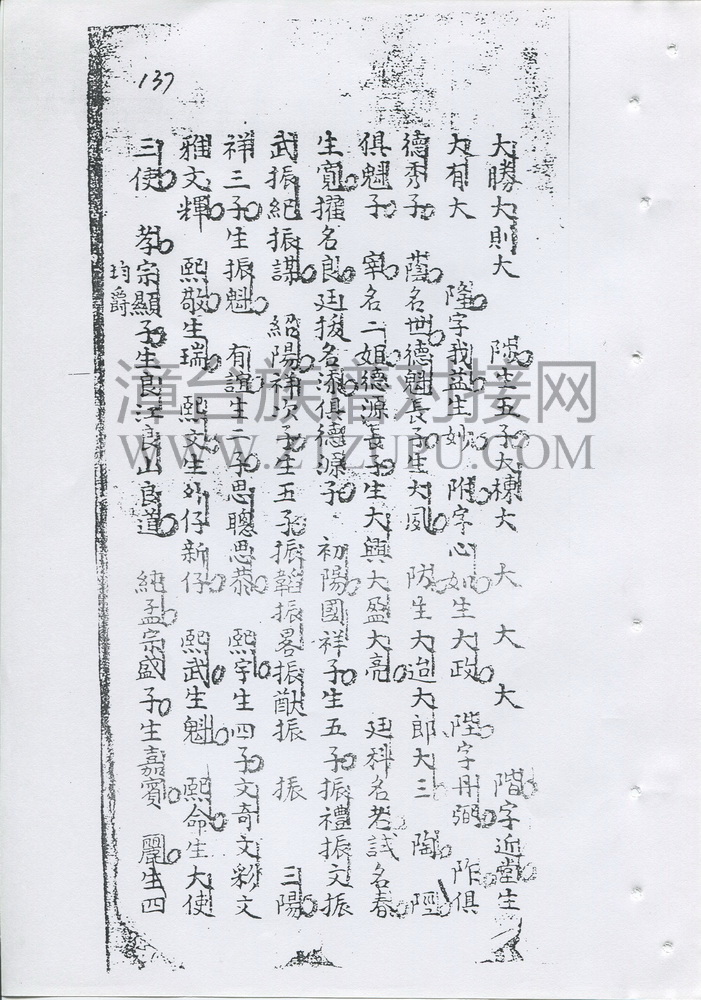 137
大勝大則大 陳生五子大棟大 大 大 大 階字近堂生
大有大 隆字我益生妙 附字心如生大政 陛字丹弼 阼俱
德秀子 蔭名世德魁長子生大風 防生大迨大郎大三 陶 陘
俱魁子 宰名二姐德源長子生大興大盈大亮 廷科名老試名春
生寬擢名良廷拔名添俱德源子 初陽國祥子生五子振禮振文振
武振紀振謀 紹陽祥次子生五子振韜振畧振猷振 振 三陽
祥三子生振魁 有誼生二子思聰思恭 熙宇生四子文奇文彩文
雅文輝 熙敬生瑞 熙文生外仔新仔 熙武生魁 熙命生大使
三使 孝宗顯子生良江良山良道 純孟宗盛子生嘉賓 麗生四
均爵
漳台族譜对接网
WWW.ZTZUPU.COM